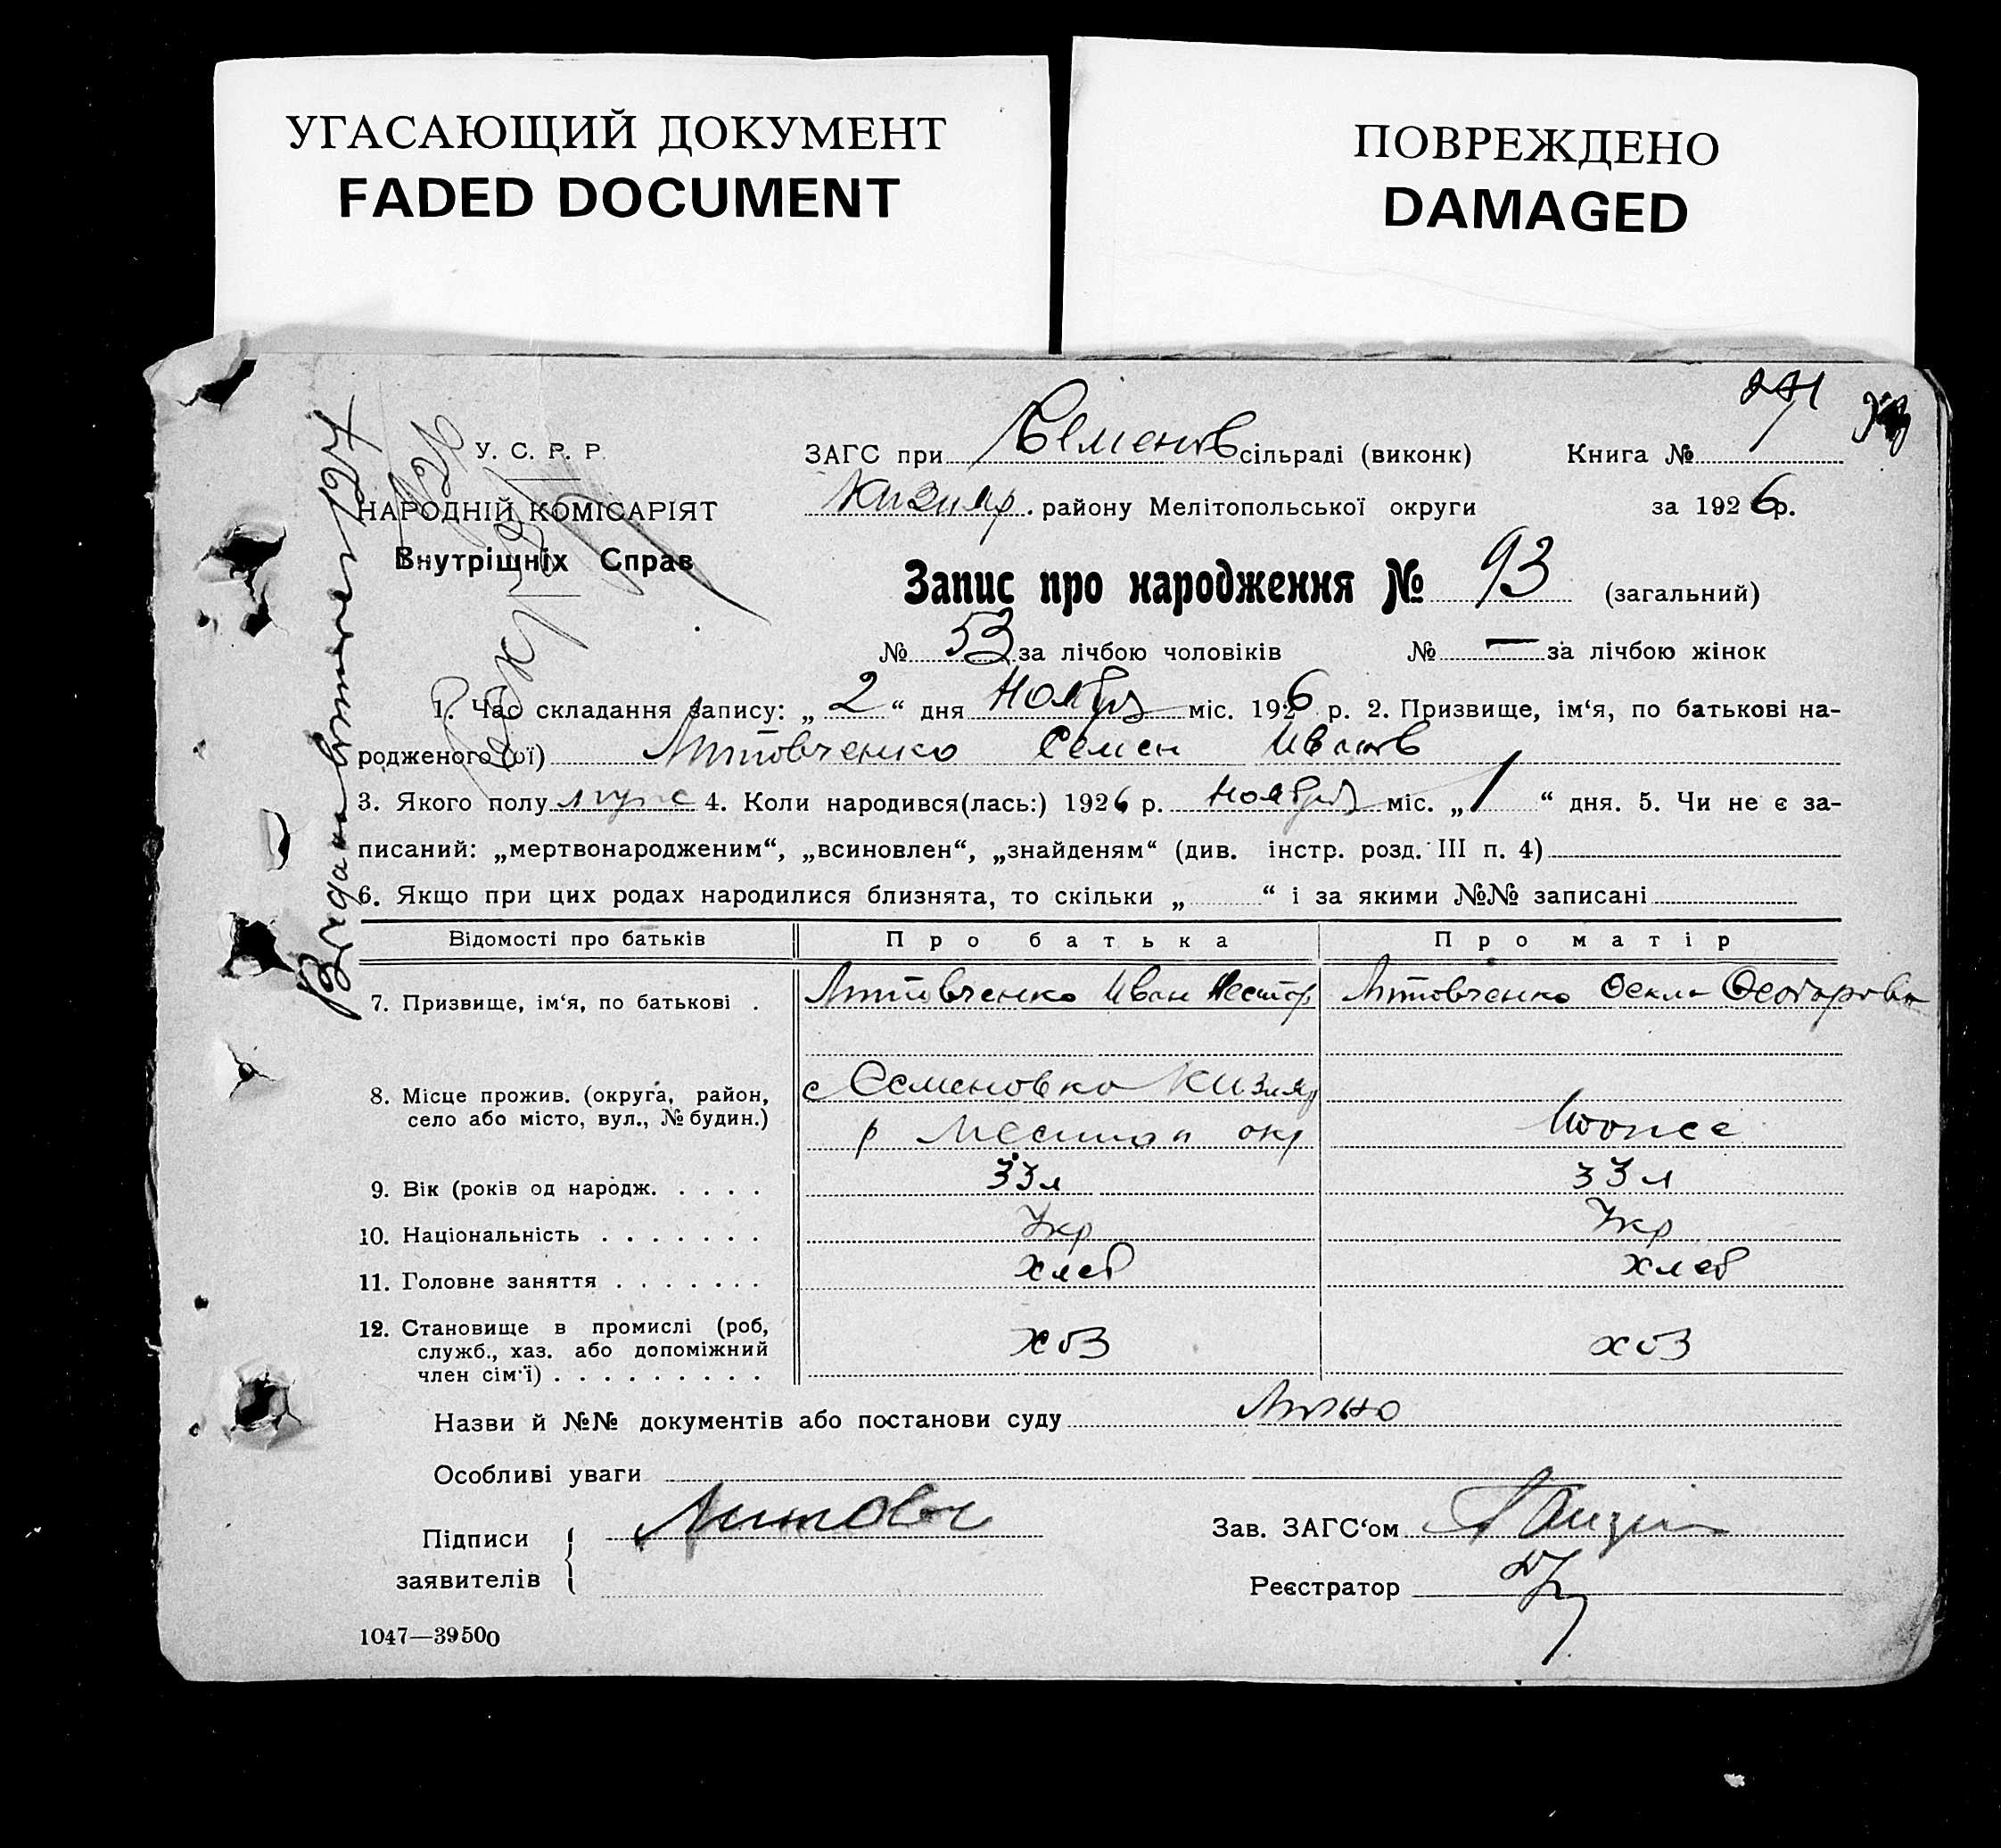 УГАСАЮЩИЙ ДОКУМЕНТ
FADED DOCUMENT
ПОВРЕЖДЕНО
DAMAGED
У. С. Р. Р.
НАРОДНІЙ КОМІСАРІЯТ
Внутрішніх Справ
ЗАГС при Семенов сільраді (виконк) Книга №
Кизияр. району Мелітопольської округи за 1926 р.
Запис про народження № 93 (загальний)
№ 53 за лічбою чоловіків № — за лічбою жінок
1. Час складання запису: „ 2 “ дня Ноября міс. 1926 р. 2. Призвище, ім‘я, по батькові на-
родженого (ої) Литовченко Семен Иванов
3. Якого полу муже 4. Коли народився(лась:) 1926 р. Ноября міс. „ 1 “ дня. 5. Чи не є за-
писаний: „мертвонародженим“, „всиновлен“, „знайденям“ (див. інстр. розд. III п. 4)
6. Якщо при цих родах народилися близнята, то скільки „ “ і за якими №№ записані
Відомості про батьків Про батька Про матір
7. Призвище, ім‘я, по батькові . Литовченко Иван Нестор Литовченко Фекла Феодоровна
8. Місце прожив. (округа, район, с Семеновка Кизияр
село або місто, вул., № будин.) р Мелитоп окр тоже
9. Вік (років од народж. . . . . 33 л 33 л
10. Національність . . . . . . . Укр Укр
11. Головне заняття . . . . . . . хлеб хлеб
12. Становище в промислі (роб,
служб., хаз. або допоміжний хоз хоз
член сім‘ї) . . . . . . . . .
Назви й №№ документів або постанови суду Лично
Особливі уваги
Підписи Литовч Зав. ЗАГС‘ом
заявителів Реєстратор
1047—39500